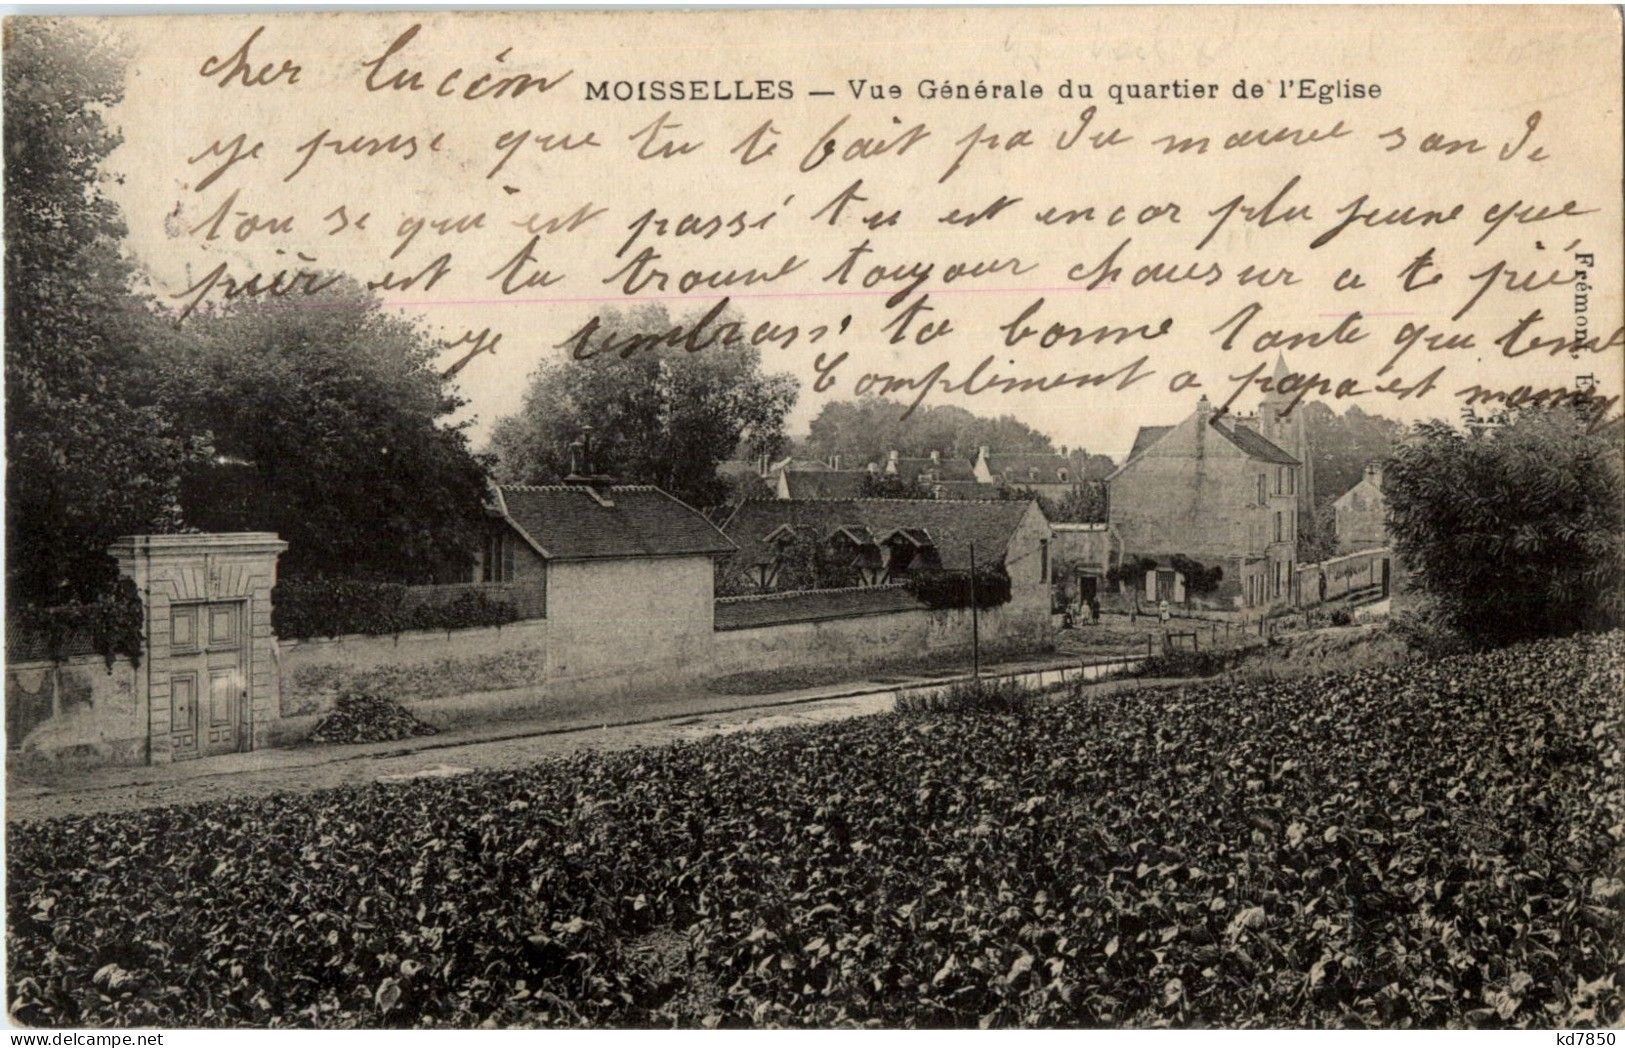 cher lucién
MOISSELLES — Vue Générale du quartier de l'Eglise
je pense que tu te fait pa du mauve san de
tou se qui est passé tu est encor plu jeune que
pier est tu trouve toujour chausur a te pié
je tembrass ta bonne tante qui teme
Compliment a papa et maman
Frémont, Éd
kd7850